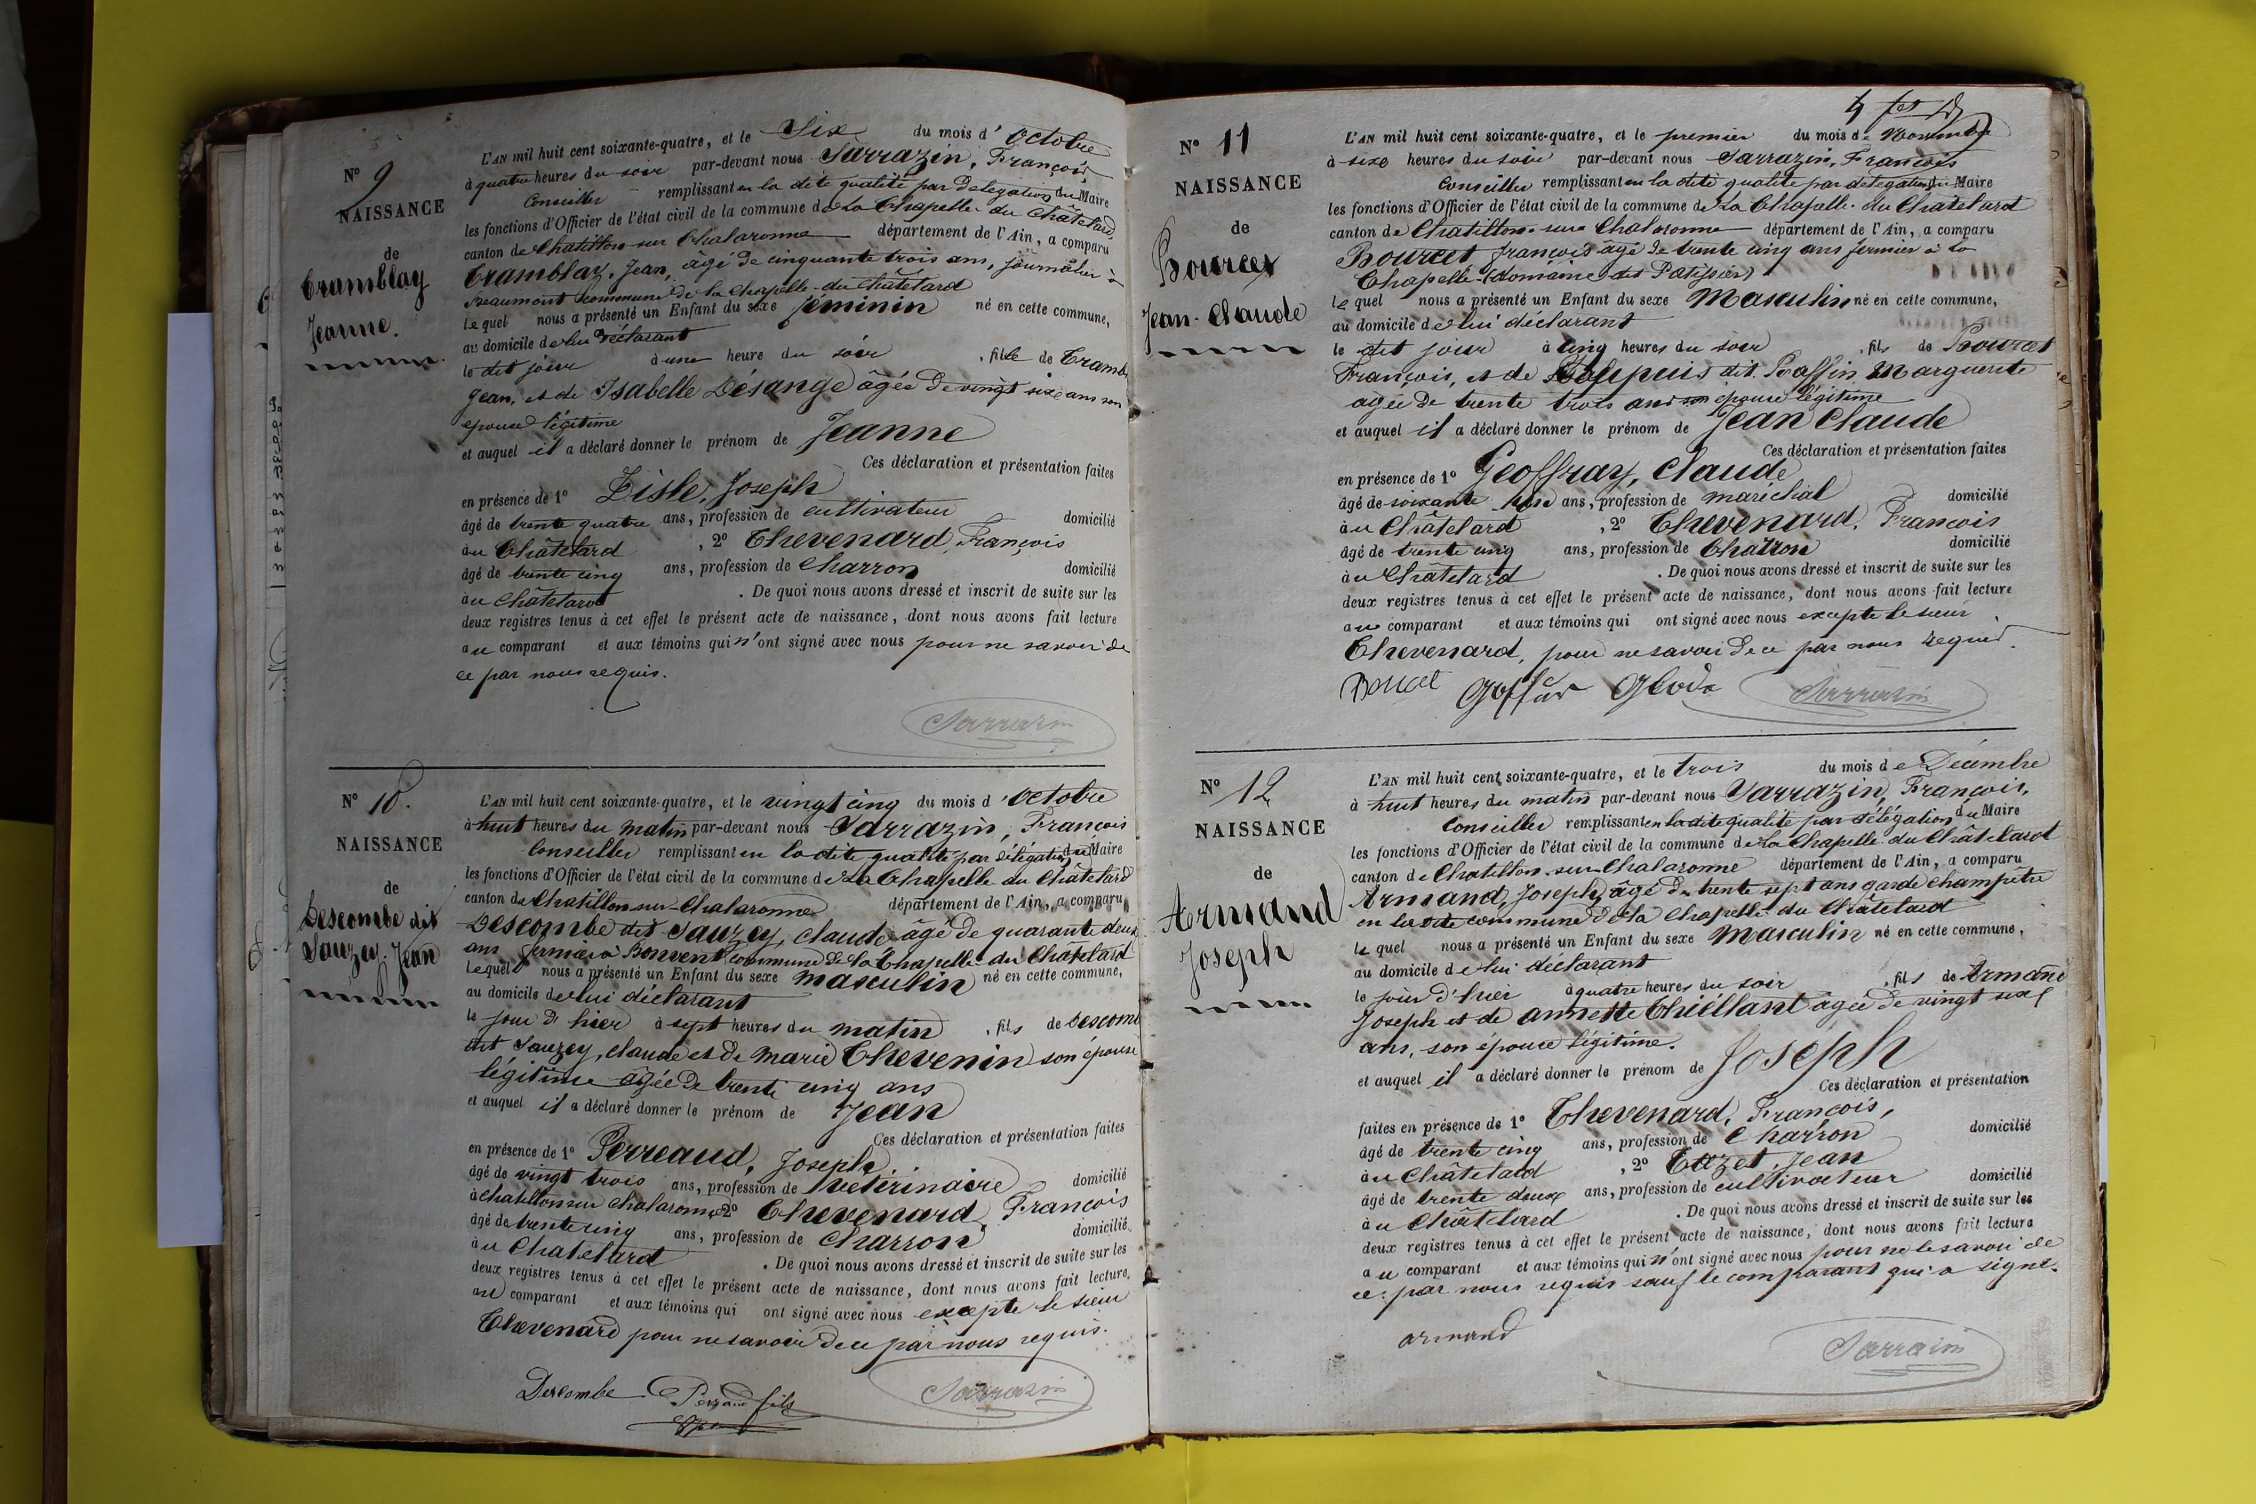 N° 9
NAISSANCE
de
Tramblay
Jeanne.
L'AN mil huit cent soixante-quatre, et le Six du mois d'Octobre
à quatre heures du soir par-devant nous Sarrazin, François
Conseiller remplissant en la dite qualité par délégation du Maire
les fonctions d'Officier de l'état civil de la commune de La Chapelle du Châtelard
canton de Chatillon sur Chalaronne département de l'Ain, a comparu
Tramblay, Jean, âgé de cinquante trois ans, journalier à
Beaumont commune de la Chapelle-du Châtelard
le quel nous a présenté un Enfant du sexe féminin né en cette commune,
au domicile de lui déclarant
le dit jour à une heure du soir , fille de Trambl
Jean, et de Isabelle Désange âgée de vingt six ans son
epouse légitime
et auquel il a déclaré donner le prénom de Jeanne
Ces déclaration et présentation faites
en présence de 1° Lisle, Joseph
âgé de trente quatre ans, profession de cultivateur domicilié
à u Châtelard , 2° Chevenard, François
âgé de trente cinq ans, profession de Charron domicilié
à u Châtelard . De quoi nous avons dressé et inscrit de suite sur les
deux registres tenus à cet effet le présent acte de naissance, dont nous avons fait lecture
au comparant et aux témoins qui n'ont signé avec nous pour ne savoir de
ce par nous requis.
Sarrazin
N° 10.
NAISSANCE
de
Descombe dit
Sauzey, Jean
L'AN mil huit cent soixante-quatre, et le vingt cinq du mois d'Octobre
à huit heures du matin par-devant nous Sarrazin, François
Conseiller remplissant en la dite qualité par délégation du Maire
les fonctions d'Officier de l'état civil de la commune de La Chapelle du Châtelard
canton de Chatillon sur Chalaronne département de l'Ain, a comparu
Descombe dit Sauzey, Claude âgé de quarante deux
ans fermier à Bonvent commune de la Chapelle du Châtelard
le quel nous a présenté un Enfant du sexe masculin né en cette commune,
au domicile de lui déclarant
le jour d'hier à sept heures du matin , fils de Descomb
dit Sauzey, Claude et de Marie Chevenin son épouse
légitime âgée de trente cinq ans
et auquel il a déclaré donner le prénom de Jean
Ces déclaration et présentation faites
en présence de 1° Perreaud, Joseph
âgé de vingt trois ans, profession de vétérinaire domicilié
à Chatillon sur Chalaronne, 2° Chevenard, François
âgé de trente cinq ans, profession de charron domicilié
à u Chatelard . De quoi nous avons dressé et inscrit de suite sur les
deux registres tenus à cet effet le présent acte de naissance, dont nous avons fait lecture,
au comparant et aux témoins qui ont signé avec nous excepte le sieur
Chevenard pour ne savoir de ce par nous requis.
Descombe Perraud fils Sarrazin
N° 11
NAISSANCE
de
Bourcet
Jean-Claude
L'AN mil huit cent soixante-quatre, et le premier du mois de Novembre
à six heures du soir par-devant nous Sarrazin, François
Conseiller remplissant en la dite qualité par délégation du Maire
les fonctions d'Officier de l'état civil de la commune de La Chapelle-du Châtelard
canton de Chatillon-sur Chalaronne département de l'Ain, a comparu
Bourcet françois âgé de trente cinq ans fermier à la
Chapelle (domaine des Patissier)
le quel nous a présenté un Enfant du sexe Masculin né en cette commune,
au domicile de lui déclarant
le dit jour à cinq heures du soir , fils de Bourcet
François, et de dit Raffin Marguerite
agée de trente trois ans son épouse légitime
et auquel il a déclaré donner le prénom de Jean Claude
Ces déclaration et présentation faites
en présence de 1° Geoffray, Claude
âgé de soixante ans, profession de maréchal domicilié
à u Châtelard , 2° Chevenard, François
âgé de trente cinq ans, profession de Charron domicilié
à u Châtelard . De quoi nous avons dressé et inscrit de suite sur les
deux registres tenus à cet effet le présent acte de naissance, dont nous avons fait lecture
au comparant et aux témoins qui ont signé avec nous excepte le sieur
Chevenard, pour ne savoir de ce par nous requis.
Sarrazin
N° 12
NAISSANCE
de
Armand
Joseph
L'AN mil huit cent soixante-quatre, et le trois du mois de Décembre
à huit heures du matin par-devant nous Sarrazin, François,
Conseiller remplissant en la dite qualité par délégation du Maire
les fonctions d'Officier de l'état civil de la commune de La Chapelle du Châtelard
canton de Chatillon sur Chalaronne département de l'Ain, a comparu
Armand, Joseph, âgé de trente sept ans garde champêtre
en la dite commune de la Chapelle du Châtelard
le quel nous a présenté un Enfant du sexe Masculin né en cette commune,
au domicile de lui déclarant
le jour d'hier à quatre heures du soir , fils de Armand
Joseph et de annette Chiéllant âgée de vingt six
ans, son epouse légitime.
et auquel il a déclaré donner le prénom de Joseph
Ces déclaration et présentation
faites en présence de 1° Chevenard, François,
âgé de trente cinq ans, profession de Charron domicilié
à u Châtelard , 2° Jean
âgé de trente deux ans, profession de cultivateur domicilié
à u Châtelard . De quoi nous avons dressé et inscrit de suite sur les
deux registres tenus à cet effet le présent acte de naissance, dont nous avons fait lecture
au comparant et aux témoins qui n'ont signé avec nous pour ne le savoir de
ce par nous requis sauf le comparant qui a signé.
armand Sarrazin